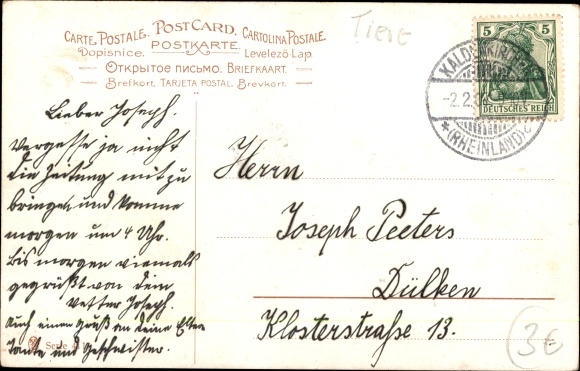 Tiere
CARTE POSTALE. POSTCARD. CARTOLINA POSTALE.
Dopisnice. POSTKARTE. Levelező-Lap.
ОТКРЫТОЕ ПИСЬМО. BRIEFKAART.
Brefkort. TARJETA POSTAL. Brevkort.
5 5
DEUTSCHES REICH
KALDENKIRCHEN
-2.2.
*(RHEINLAND) c
Lieber Joseph.
Vergesse ja nicht
die Zeitung mit zu
bringen, und komme
morgen um 4 Uhr.
Bis morgen viemals
gegrüßt von dein
Vetter Joseph.
Auch einen Gruß an deine Eltern
Tante und Geschwister.
Serie
Herrn
Joseph Peeters
Dülken
Klosterstraße 13.
3€